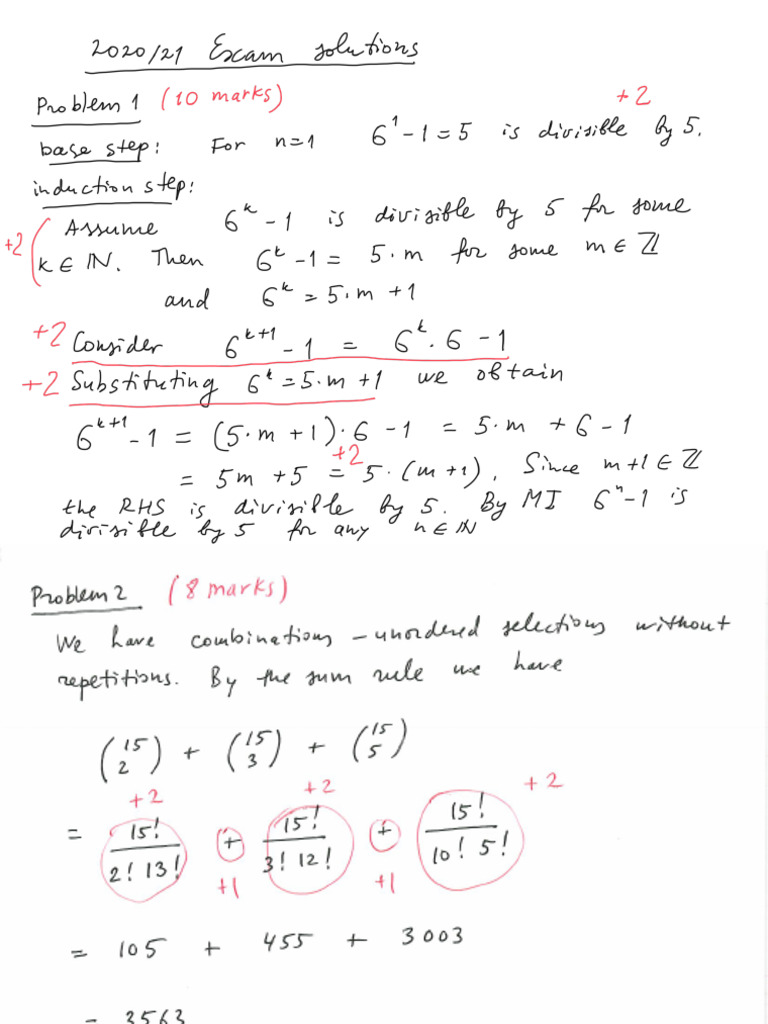 2020/21 Exam solutions
Problem 1 (10 marks) +2
base step: For n=1 6^1 - 1 = 5 is divisible by 5.
induction step:
Assume 6^k - 1 is divisible by 5 for some
+2 k ∈ ℕ. Then 6^k - 1 = 5·m for some m ∈ ℤ
and 6^k = 5·m + 1
+2 Consider 6^{k+1} - 1 = 6^k · 6 - 1
+2 Substituting 6^k = 5·m + 1 we obtain
6^{k+1} - 1 = (5·m + 1)·6 - 1 = 5·m + 6 - 1
+2
= 5m + 5 = 5·(m+1). Since m+1 ∈ ℤ
the RHS is divisible by 5. By MI 6^n - 1 is
divisible by 5 for any n ∈ ℕ
Problem 2 (8 marks)
We have combinations - unordered selections without
repetitions. By the sum rule we have
(15 2) + (15 3) + (15 5)
+2 +2 +2
= 15!/(2! 13!) + 15!/(3! 12!) + 15!/(10! 5!)
+1 +1
= 105 + 455 + 3003
= 3563